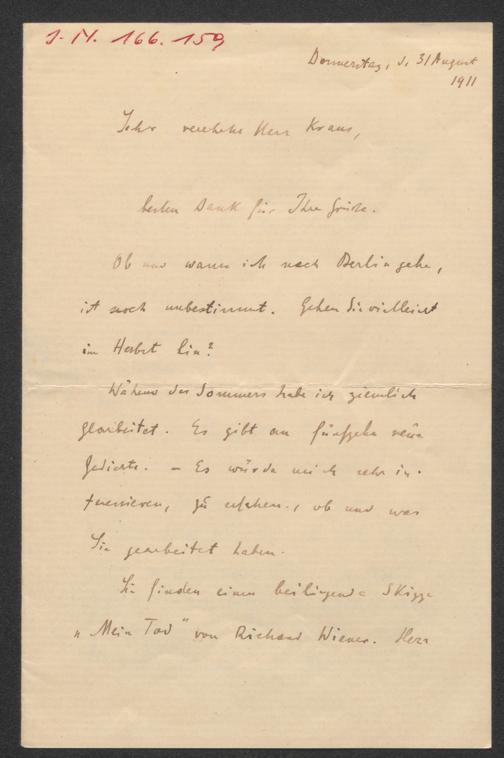 J. N. 166.159
Donnerstag, d. 31 August
1911
Sehr verehrter Herr Kraus,
besten Dank für Ihre Grüsse.
Ob und wann ich nach Berlin gehe,
ist noch unbestimmt. Gehen Sie vielleicht
im Herbst hin?
Während des Sommers habe ich ziemlich
gearbeitet. Es gibt an fünfzehn neue
Gedichte. – Es würde mich sehr in-
teressieren, zu erfahren, ob und was
Sie gearbeitet haben.
Sie finden einen beiliegende Skizze
„Mein Tod" von Richard Wiener. Herr